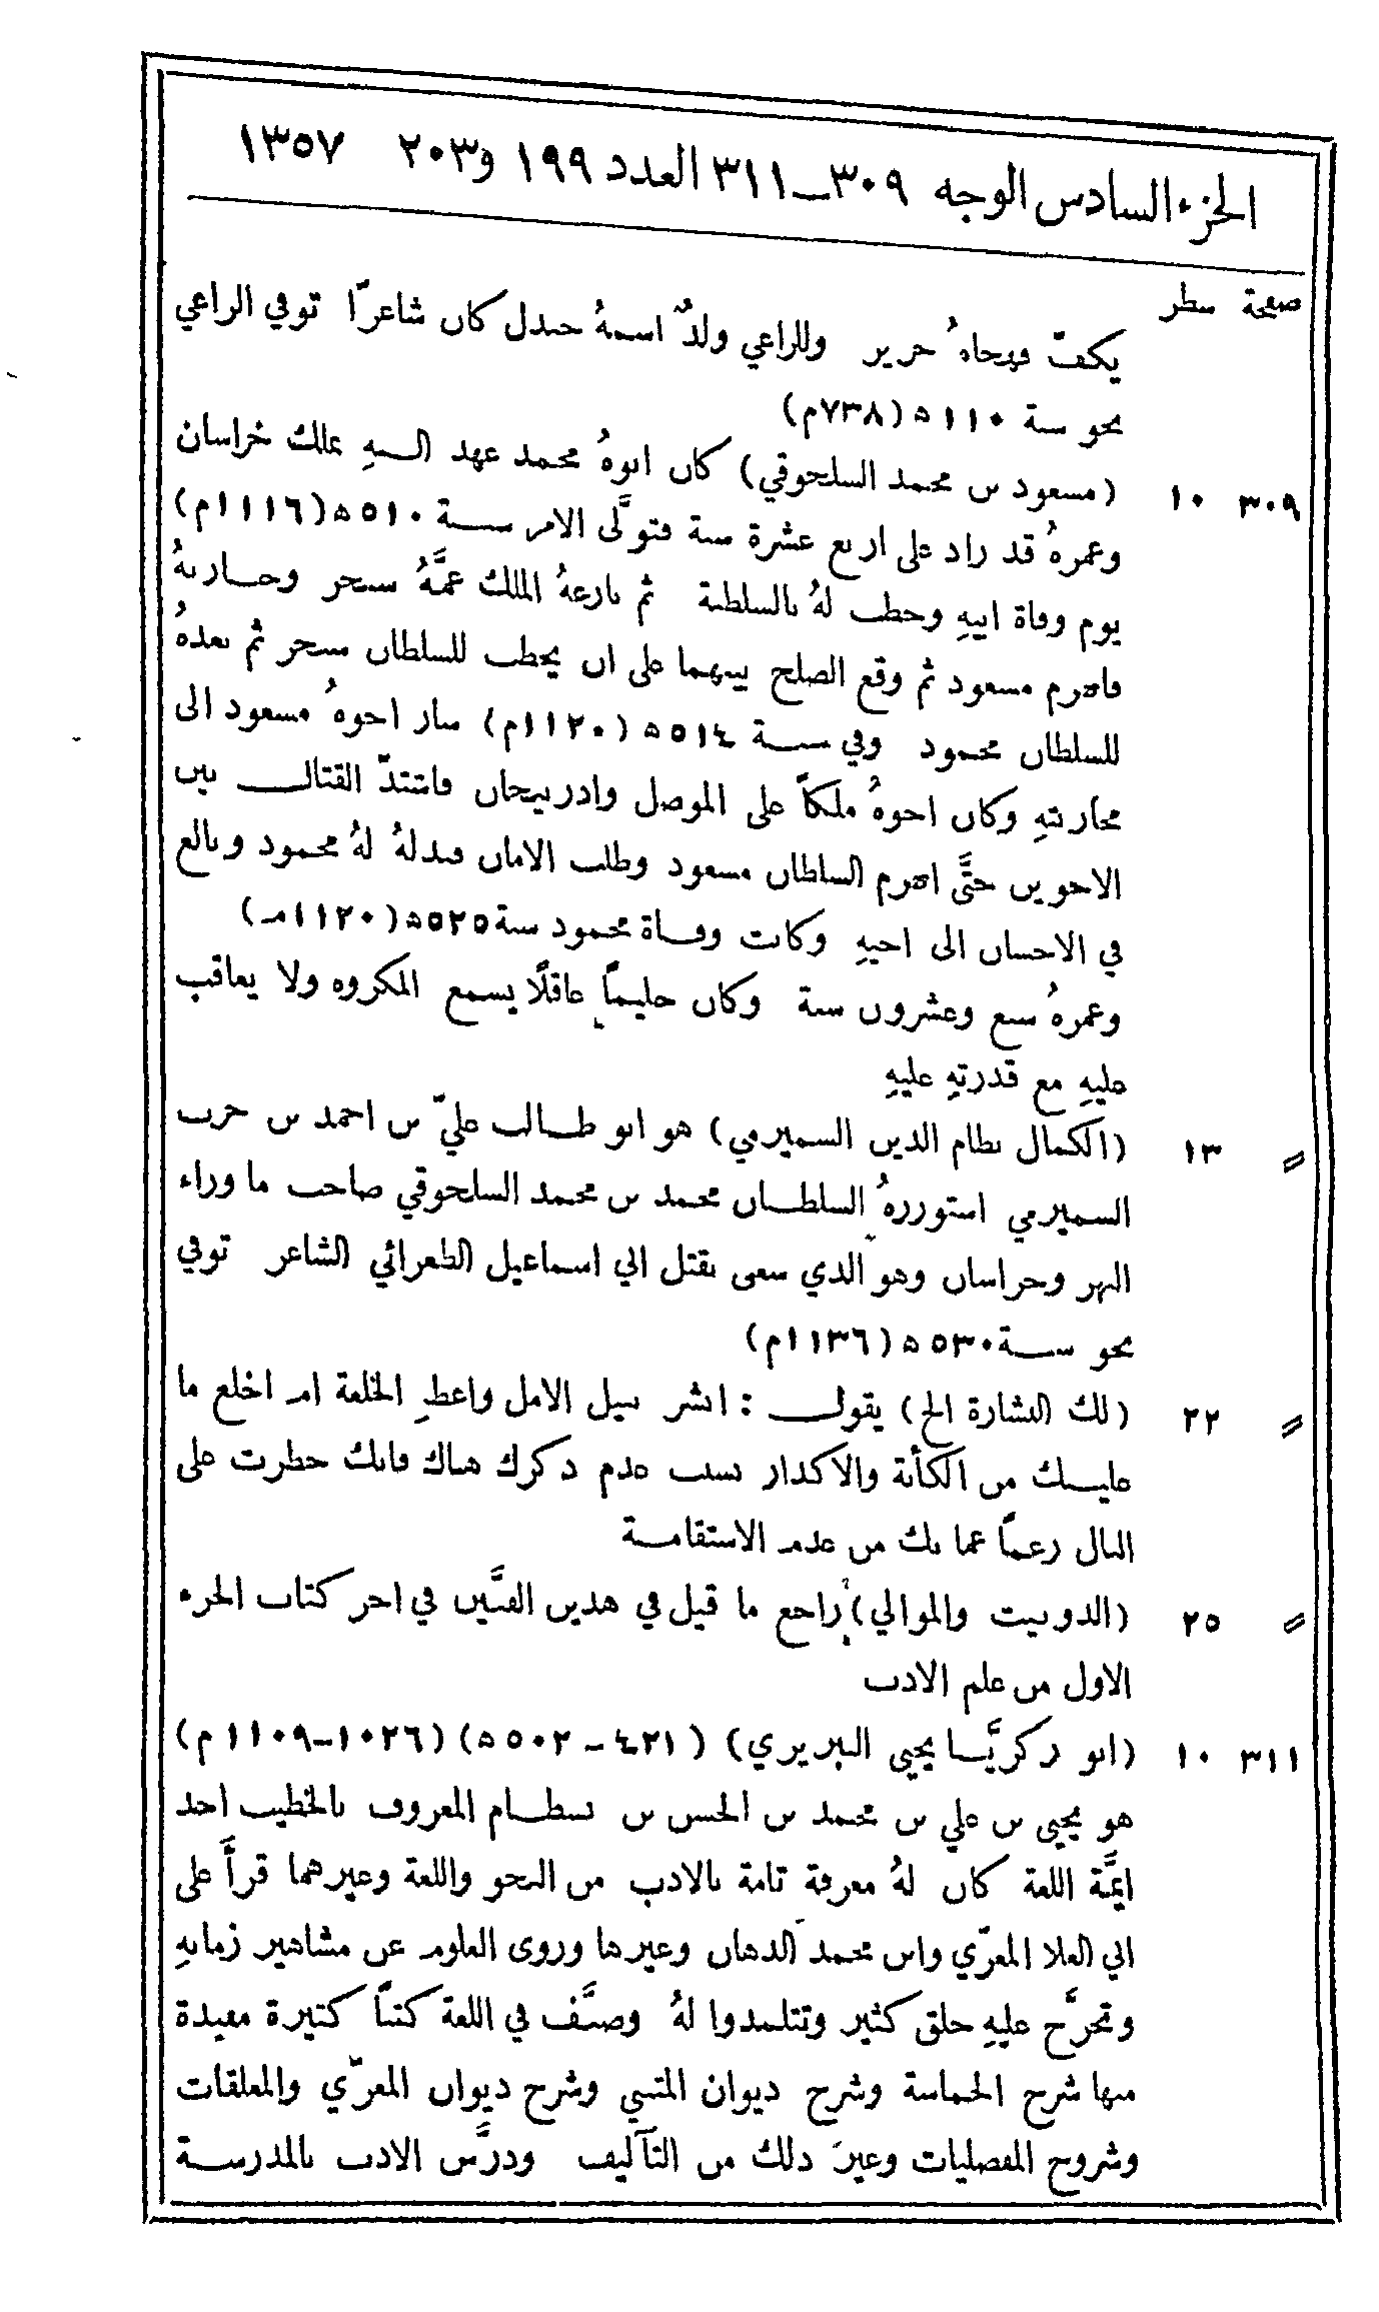 الجزء السادس الوجه ٣٠٩_٣١١ العدد ١٩٩ و٢٠٣ ١٣٥٧
صفحة سطر
يكفّ فهجاهُ جرير وللراعي ولدٌ اسمهُ جندل كان شاعرًا توفي الراعي
نحو سنة ١١٠ ه (٧٣٨م)
٣٠٩ ١٠ (مسعود بن محمد السلجوقي) كان ابوهُ محمد عهد اليه بملك خراسان
وعمرهُ قد زاد على اربع عشرة سنة فتولَّى الامر سنة ٥١٠ه (١١١٦م)
يوم وفاة ابيهِ وخطب لهُ بالسلطنة ثم نازعهُ الملك عمَّهُ سنجر وحاربهُ
فانهزم مسعود ثم وقع الصلح بينهما على ان يخطب للسلطان سنجر ثم بعدهُ
للسلطان محمود وفي سنة ٥١٤ه (١١٢٠م) سار اخوهُ مسعود الى
محاربتهِ وكان اخوهُ ملكًا على الموصل واذربيجان فاشتدّ القتال بين
الاخوين حتَّى انهزم السلطان مسعود وطلب الامان فبذلهُ لهُ محمود وبالغ
في الاحسان الى اخيهِ وكانت وفاة محمود سنة ٥٢٥ه (١١٢٠م)
وعمرهُ سبع وعشرون سنة وكان حليمًا عاقلًا يسمع المكروه ولا يعاقب
عليهِ مع قدرتهِ عليهِ
〃 ١٣ (الكمال نظام الدين السميرمي) هو ابو طالب عليّ بن احمد بن حرب
السميرمي استوزرهُ السلطان محمد بن محمد السلجوقي صاحب ما وراء
النهر وخراسان وهو الذي سعى بقتل ابي اسماعيل الطغرائي الشاعر توفي
نحو سنة ٥٣٠ ه (١١٣٦م)
〃 ٢٢ (لك البشارة الخ) يقول : ابشر بنيل الامل واعطِ الخلعة ام اخلع ما
عليك من الكأبة والاكدار بسبب عدم ذكرك هناك فانك خطرت على
البال رغمًا عما بك من عدم الاستقامة
〃 ٢٥ (الدوبيت والموالي) راجع ما قيل في هذين الفنَّين في اخر كتاب الجزء
الاول من علم الادب
٣١١ ١٠ (ابو زكريَّا يحيى التبريزي) (٤٢١ – ٥٠٢ ه) (١٠٢٦–١١٠٩ م)
هو يحيى بن علي بن محمد بن الحسن بن بسطام المعروف بالخطيب احد
ايمَّة اللغة كان لهُ معرفة تامة بالادب من النحو واللغة وغيرهما قرأَ على
ابي العلا المعرّي وابن محمد الدهان وغيرها وروى العلوم عن مشاهير زمانهِ
وتخرَّج عليهِ خلق كثير وتتلمذوا لهُ وصنَّف في اللغة كتبًا كثيرة مفيدة
منها شرح الحماسة وشرح ديوان المتنبي وشرح ديوان المعرّي والمعلقات
وشروح المفضليات وغيرَ ذلك من التآليف ودرَّس الادب بالمدرسة